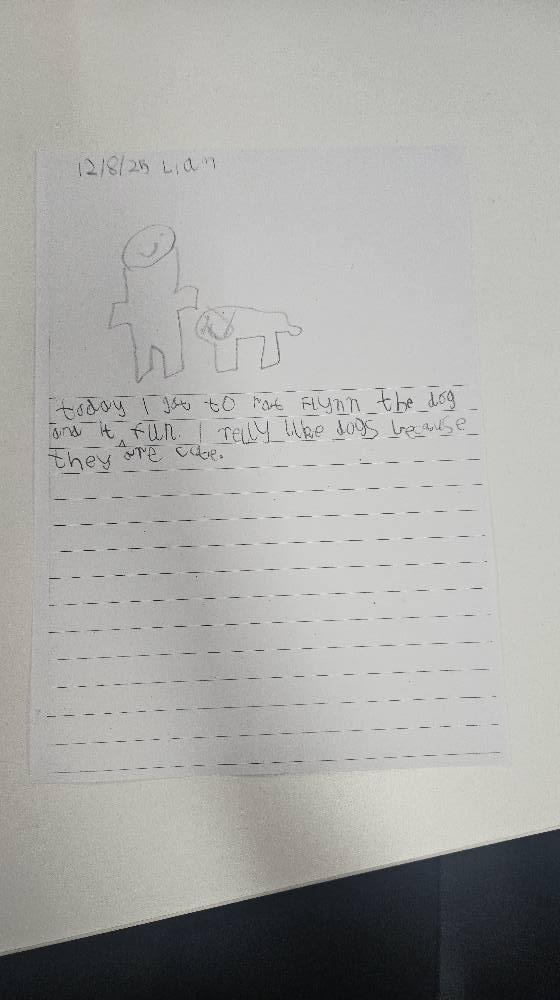 12/8/25 Lian
today I got to Pat Flynn the dog
and it fun. I relly like dogs because
they are cute.